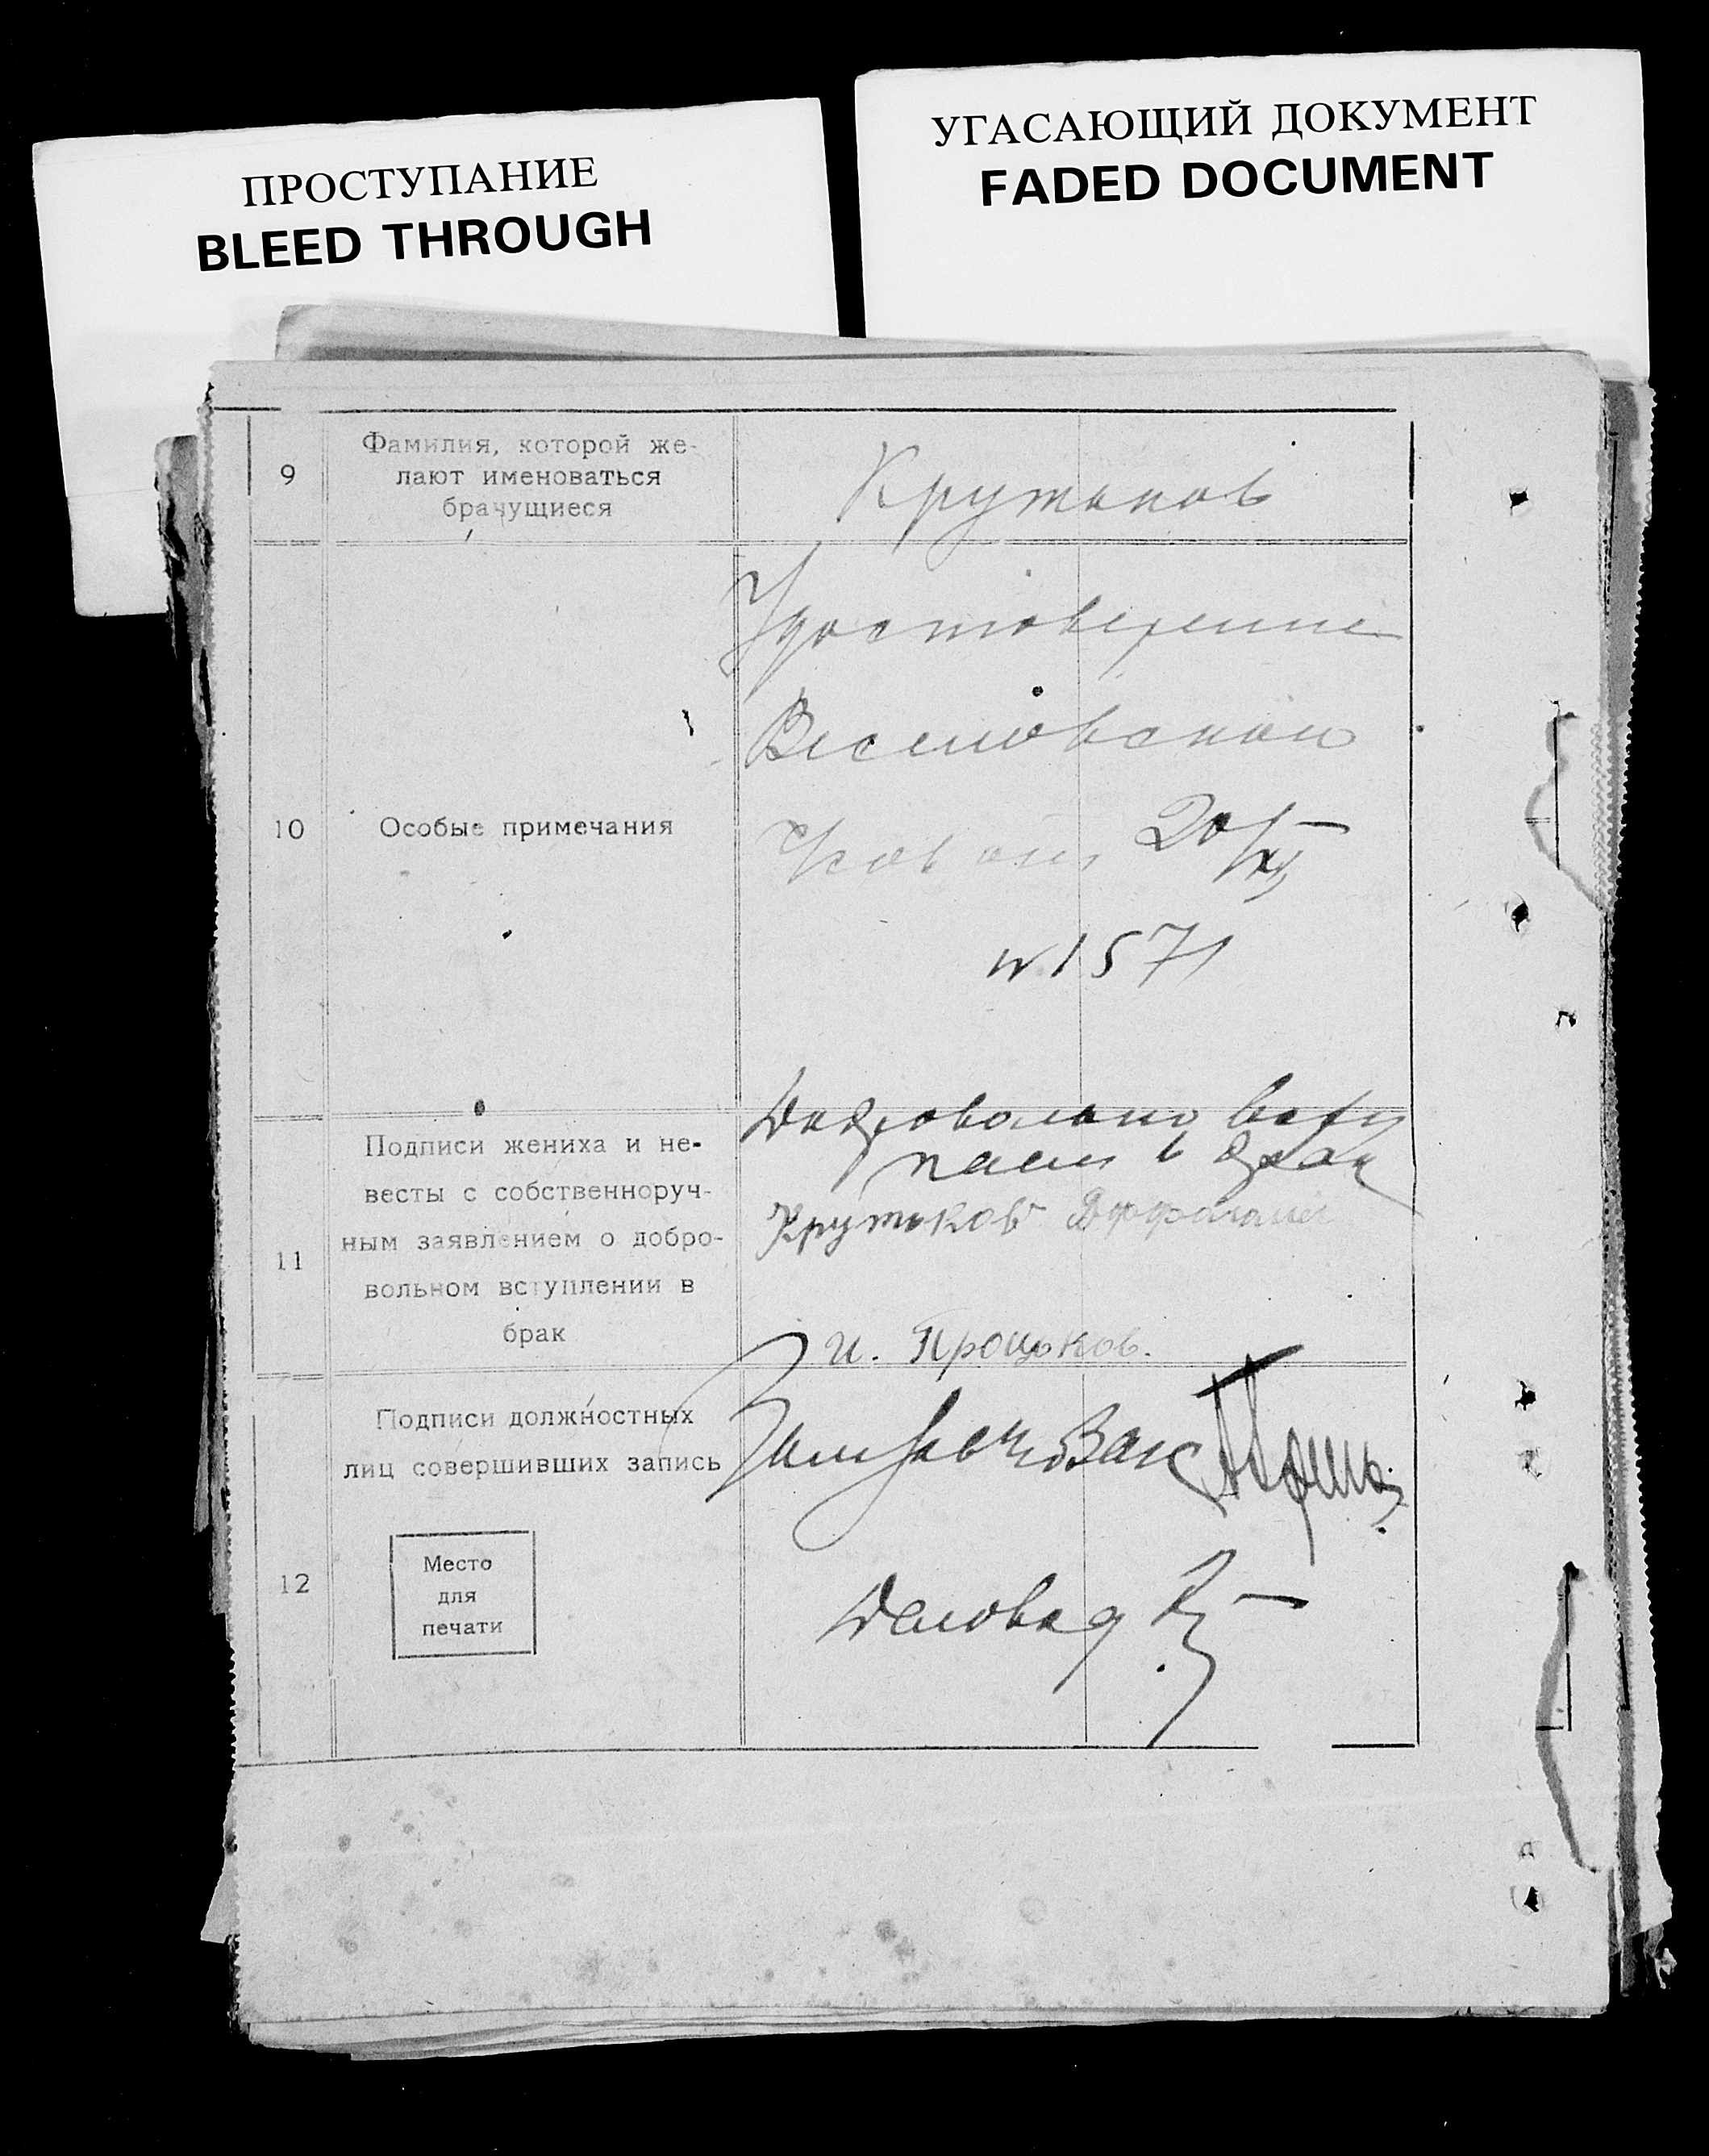 ПРОСТУПАНИЕ
BLEED THROUGH
УГАСАЮЩИЙ ДОКУМЕНТ
FADED DOCUMENT
9
Фамилия, которой же-
лают именоваться
брачущиеся
Крутьков
10
Особые примечания
Удостоверение
Веселовской
20/XI
N 1571
11
Подписи жениха и не-
весты с собственноруч-
ным заявлением о добро-
вольном вступлении в
брак
Добровольно всту
паем в брак
Крутьков
и. Процьков.
12
Подписи должностных
лиц совершивших запись
Место
для
печати
Деловод